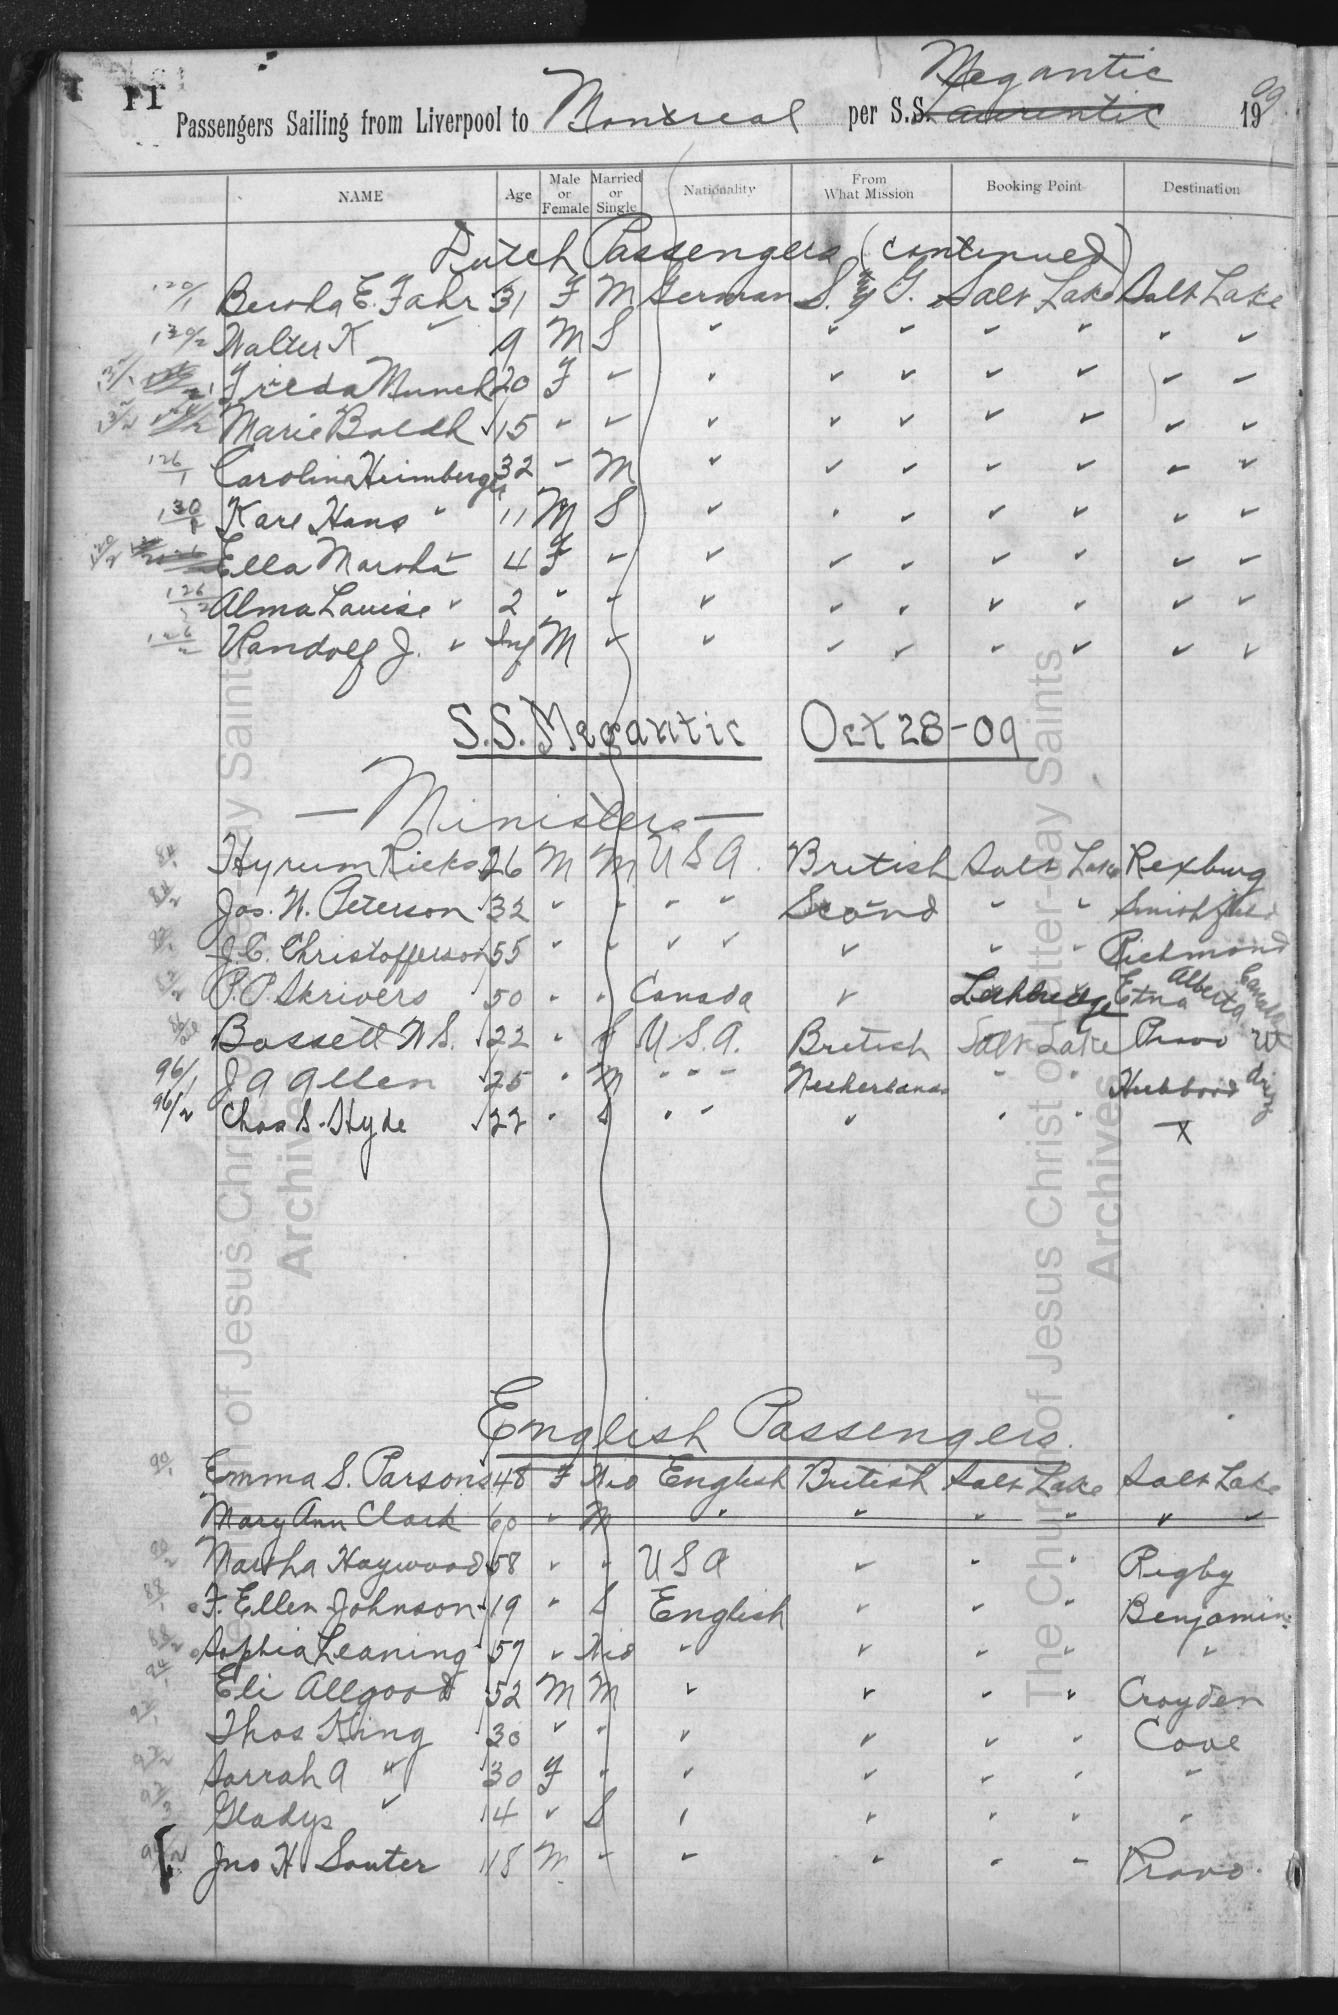 11
Megantic
Passengers Sailing from Liverpool to Montreal per S.S. Laurentic 1909
NAME Age Male or Female Married or Single Nationality From What Mission Booking Point Destination
Dutch Passengers (continued)
120/1 Bertha E. Fahr 31 F M German S. & G. Salt Lake Salt Lake
120/2 Walter K " 9 M S " " " " " " "
Frieda Munch 20 F " " " " " " " "
Marie Boldh 15 " " " " " " " " "
126/1 Carolina Heimberger 32 " M " " " " " " "
130/2 Karl Hans " 11 M S " " " " " " "
Ella Martha " 4 F " " " " " " " "
126/2 Alma Louise " 2 " " " " " " " " "
126/2 Randolf J. " Inf M " " " " " " " "
S.S. Megantic Oct 28-09
— Ministers —
84/1 Hyrum Ricks 26 M M U S A. British Salt Lake Rexburg
84/2 Jos. N. Peterson 32 " " " " Scand " " Smithfield
J. C. Christofferson 55 " " " " " " " Richmond
P. P. Skrivers 50 " " Canada " Lethbridge Etna Alberta Canada
Bassett W S. 22 " S U.S.A. British Salt Lake Provo
96/1 J A Allen 25 " M " " " Netherlands " " Hubbard
96/2 Chas S. Hyde 22 " S " " " " " X
English Passengers
90/1 Emma S. Parsons 48 F Wid English British Salt Lake Salt Lake
Mary Ann Clark 60 " M " " " " " "
90/2 Martha Haywood 58 " " U S A " " " Rigby
88/1 F. Ellen Johnson 19 " S English " " " Benjamin
88/2 Sophia Leaning 57 " Wid " " " " "
Eli Allgood 52 M M " " " " Croyden
92/1 Thos King 30 " " " " " " Cove
92/2 Sarrah A " 30 F " " " " " "
92/3 Gladys " 14 " S " " " " "
Jno H Souter 18 M " " " " " Provo.
The Church of Jesus Christ of Latter-day Saints
Archives
The Church of Jesus Christ of Latter-day Saints
Archives